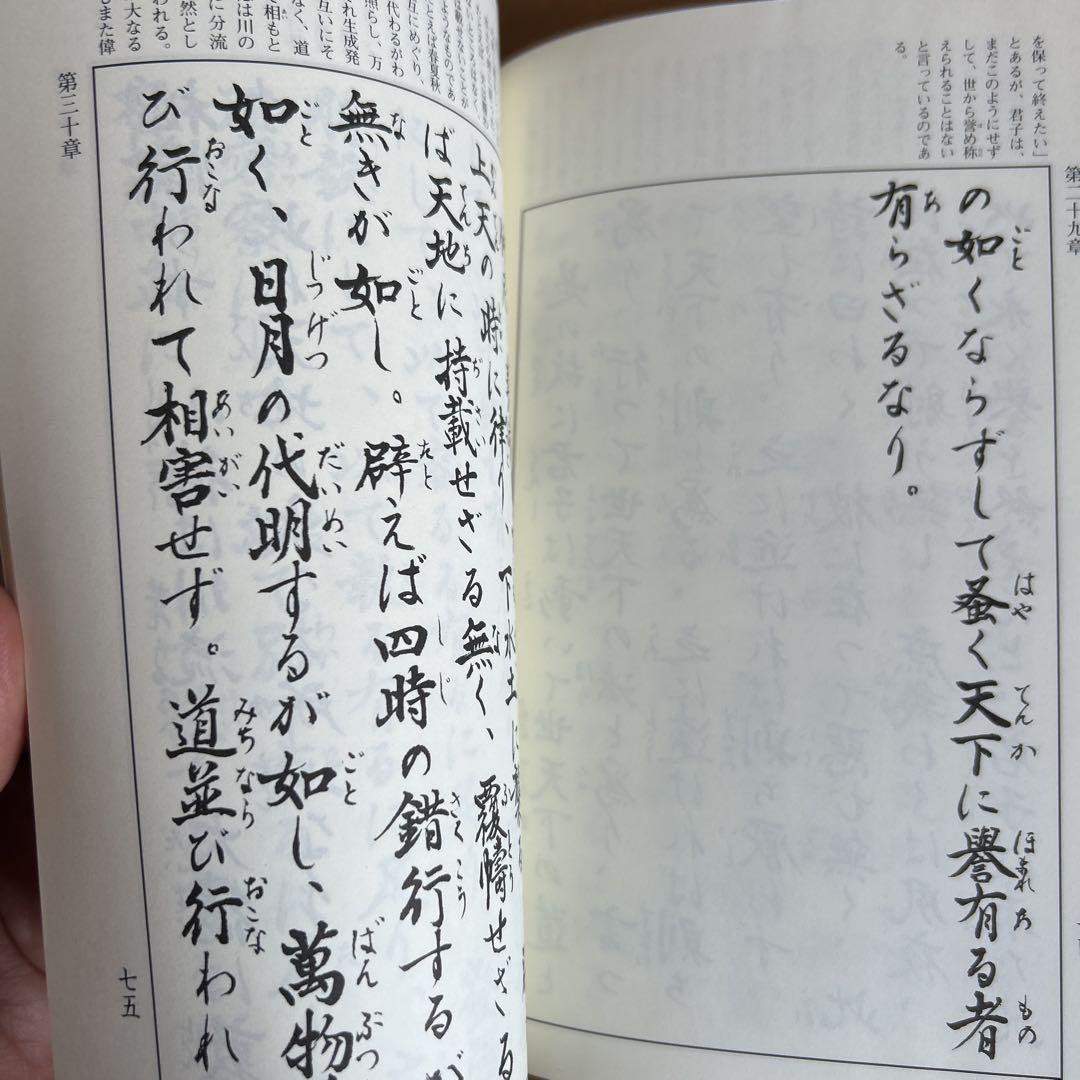 を保って終えたい」
とあるが、君子は、
まだこのようにせず
して、世から誉め称
えられることはない
と言っているのであ
る。
第二十九章
の如くならずして蚤く天下に譽有る者
有らざるなり。
上天の時に律り、下水土に
ば天地に持載せざる無く、覆幬せざる
無きが如し。辟えば四時の錯行するが
如く、日月の代明するが如し、萬物
び行われて相害せず。道並び行われ
とえば春夏秋
互にめぐり、
代わるがわ
照らし、万
れ生成発
互いにそ
なく、道
て相もと
は川の
に分流
然とし
われる。
大なる
もまた偉
第三十章
七五